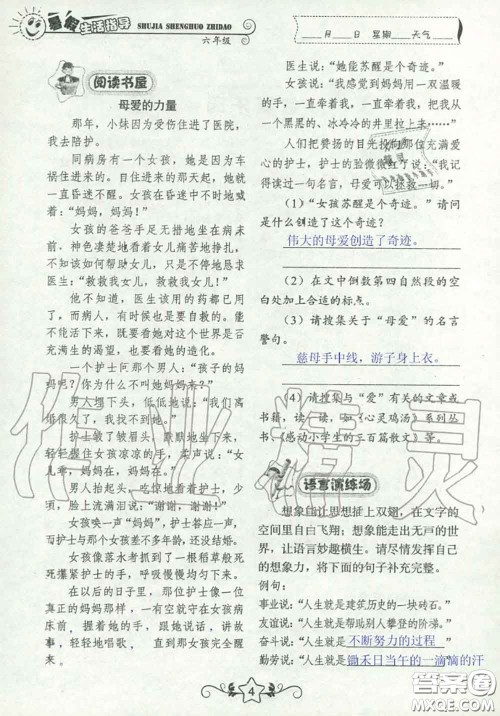 暑假生活指导
SHUJIA SHENGHUO ZHIDAO
六年级
月 日 星期 天气
阅读书屋
母爱的力量
那年，小妹因为受伤住进了医院，
我去陪护。
同病房有一个女孩，她是因为车
祸住进来的。自住进来的那天起，她就
一直昏迷不醒。女孩在昏迷中不时地或
着：“妈妈，妈妈！”
女孩的爸爸手足无措地坐在病床
前，神色凄楚地看着女儿痛苦地挣扎，
不知该如何帮助女儿，只是不停地恳求
医生：“救救我女儿，救救我女儿！”
他不知道，医生该用的药都已用
了，而病人，有时也是要自救的。能
不能活下来，要看她对这个世界是否
充满生的渴望，也要看她的意志。
一个护士问那个男人：“孩子的妈
妈呢？你为什么不叫她妈妈来？”
男人埋下头，低低地说：“我们离
婚很久了，我找不到她。”
护士皱了皱眉头，默默地坐下来，
轻轻握住女孩凉凉的手，柔声说：“女
儿乖，妈妈在。妈妈在。”
男人抬起头，吃惊地看着护士，少
顷，脸上流满泪说：“谢谢，谢谢！”
女孩唤一声“妈妈”，护士答应一声，
而护士与那个女孩差不多年龄，还没结婚。
女孩像落水者抓到了一根稻草般死
死攥紧护士的手，呼吸慢慢均匀下来。
在以后的日子里，那位护士像一位
真正的妈妈那样，一有空就守在女孩病
床前 握着她的手，跟她说话，讲故
事，轻轻地唱歌 直到那女孩完全醒
来。
医生说：“她能苏醒是个奇迹。”
女孩说：“我感觉到妈妈用一双温暖
的手，一直牵着我，一直牵着我，把我从一
个黑黑的、冰冷冷的井里拉上来……”
人们把赞扬的目光投向那位充满爱
心的护士，护士的脸微微红了，说：“我记
得读过一句名言，母爱可以拯救一切。”
（1）“女孩苏醒是个奇迹。”请问
是什么创造了这个奇迹？
伟大的母爱创造了奇迹。
（2）在文中倒数第四自然段的空
白处加上合适的标点。
（3）请搜集关于“母爱”的名言
警句。
慈母手中线，游子身上衣。
（4）请搜集与“爱”有关的文章或
书籍，读一读，如《心灵鸡汤》系列丛
书，《感动小学生的三百篇散文》等。
语言演练场
想象能让思想插上双翅，在文字的
空间里自由飞翔；想象能走出无声的世
界，让语言妙趣横生。请尽情发挥自己
的想象力，将下面的句子补充完整。
例句：
事业说：“人生就是建筑历史的一块砖石。”
友谊说：“人生就是相互扶持攀登的人梯。”
奋斗说：“人生就是不断努力的过程”
勤劳说：“人生就是锄禾日当午的一滴滴的汗
4
作业精灵
答案圈